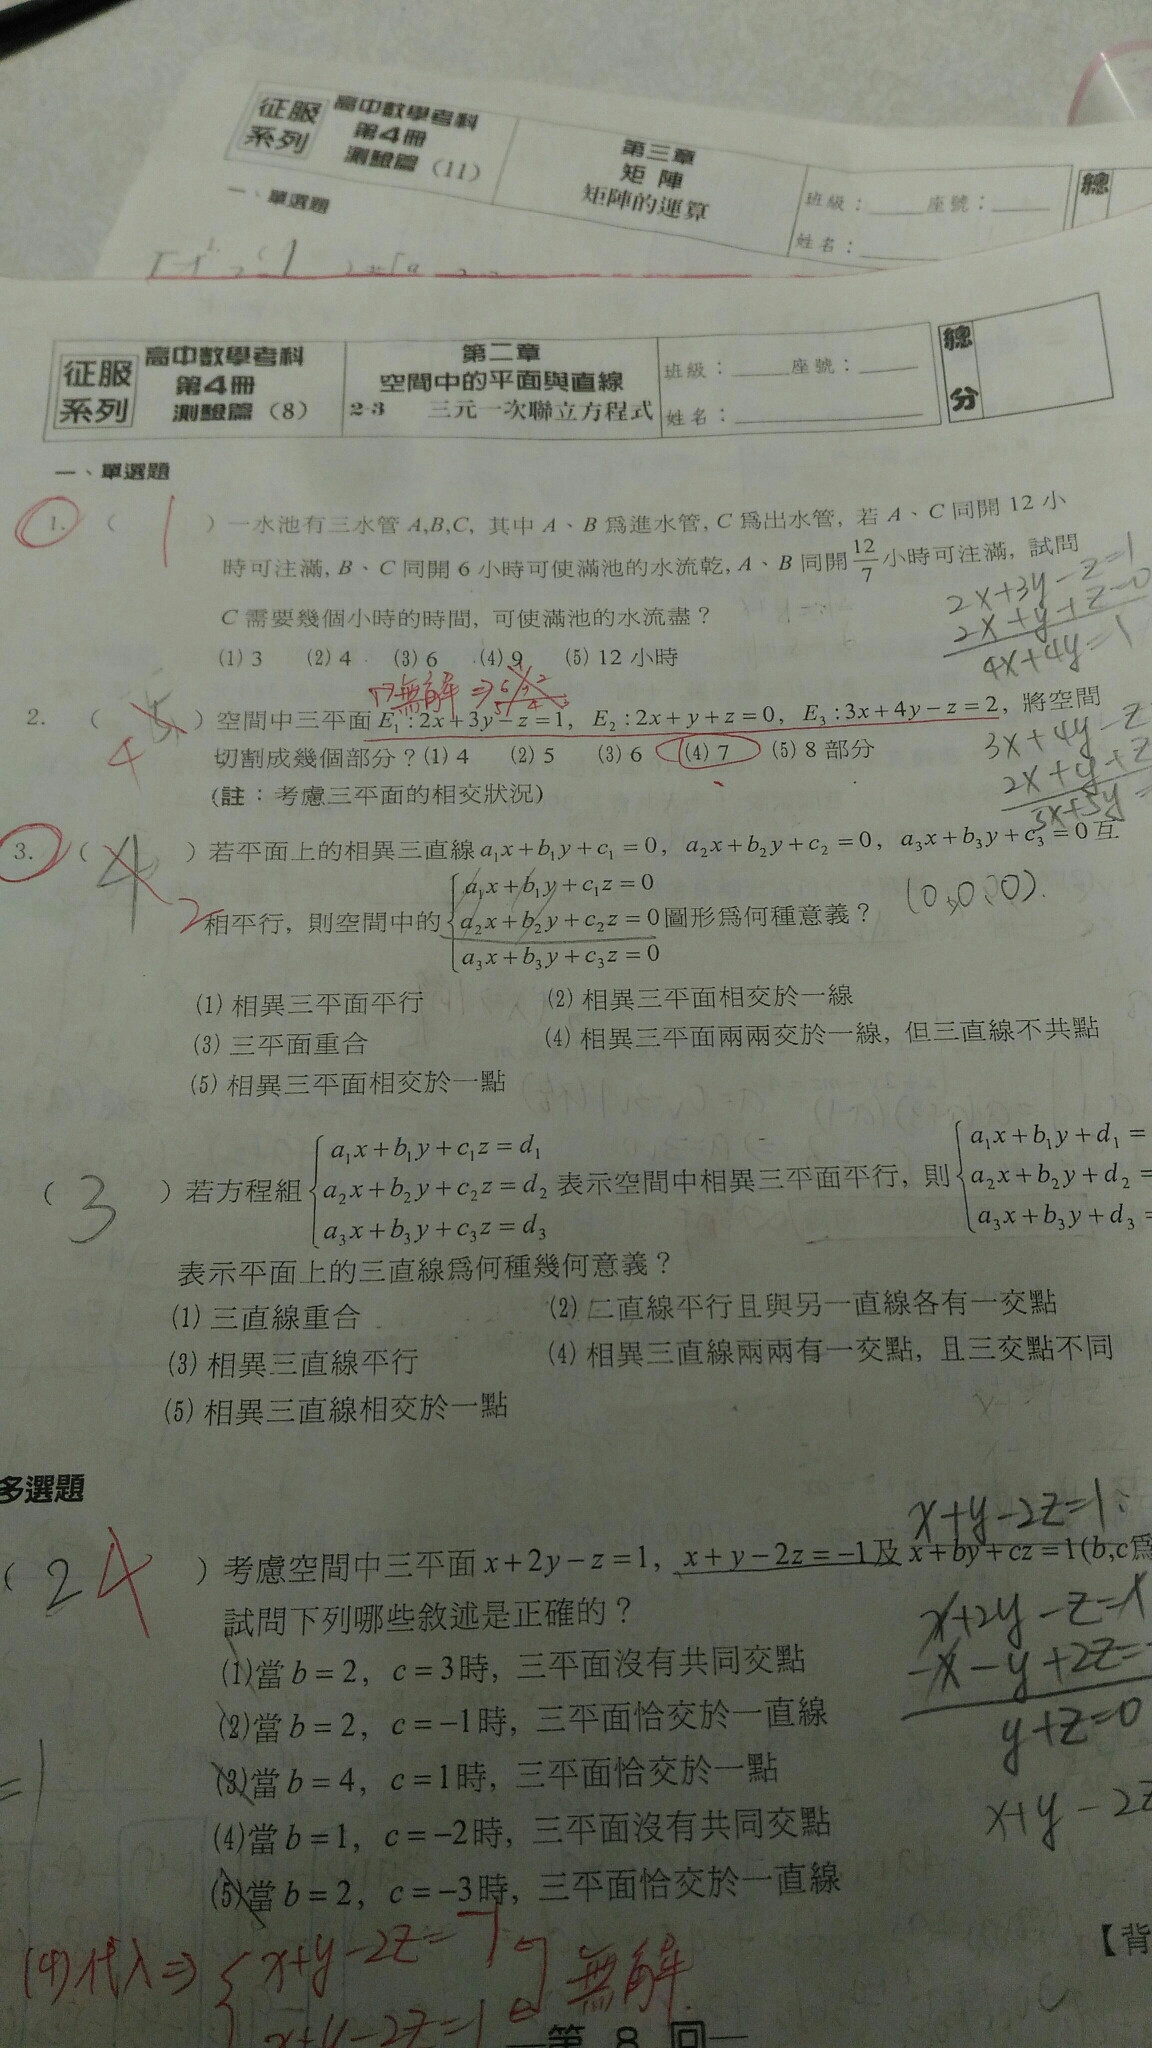 征服系列
高中數學考科
第4冊
測驗篇（11）
第三章
矩陣
矩陣的運算
班級：____座號：____
姓名：____
總
一、單選題
征服系列
高中數學考科
第4冊
測驗篇（8）
第二章
空間中的平面與直線
2-3 三元一次聯立方程式
班級：____座號：____
姓名：____
總分
一、單選題
1. ( 1 ) 一水池有三水管 A,B,C, 其中 A、B 為進水管, C 為出水管, 若 A、C 同開 12 小
時可注滿, B、C 同開 6 小時可使滿池的水流乾, A、B 同開 12/7 小時可注滿, 試問
C 需要幾個小時的時間, 可使滿池的水流盡？
(1) 3 (2) 4 (3) 6 (4) 9 (5) 12 小時
2x+3y-z=1
2x+y+z=0
4x+4y=1
無解
2. ( 5 4 ) 空間中三平面 E₁:2x+3y-z=1, E₂:2x+y+z=0, E₃:3x+4y-z=2, 將空間
切割成幾個部分？(1) 4 (2) 5 (3) 6 (4) 7 (5) 8 部分
(註：考慮三平面的相交狀況)
3x+4y-z
2x+y+z
5x+5y=
3. ( 4 2 ) 若平面上的相異三直線 a₁x+b₁y+c₁=0, a₂x+b₂y+c₂=0, a₃x+b₃y+c₃=0 互
相平行, 則空間中的 { a₁x+b₁y+c₁z=0
a₂x+b₂y+c₂z=0 圖形為何種意義？
a₃x+b₃y+c₃z=0
(0,0,0).
(1) 相異三平面平行 (2) 相異三平面相交於一線
(3) 三平面重合 (4) 相異三平面兩兩交於一線, 但三直線不共點
(5) 相異三平面相交於一點
a₁x+b₁y+c₁z=d₁ a₁x+b₁y+d₁=
( 3 ) 若方程組 { a₂x+b₂y+c₂z=d₂ 表示空間中相異三平面平行, 則 { a₂x+b₂y+d₂=
a₃x+b₃y+c₃z=d₃ a₃x+b₃y+d₃=
表示平面上的三直線為何種幾何意義？
(1) 三直線重合 (2) 二直線平行且與另一直線各有一交點
(3) 相異三直線平行 (4) 相異三直線兩兩有一交點, 且三交點不同
(5) 相異三直線相交於一點
多選題
x+y-2z=1
( 24 ) 考慮空間中三平面 x+2y-z=1, x+y-2z=-1 及 x+by+cz=1(b,c為
試問下列哪些敘述是正確的？
(1)當 b=2, c=3時, 三平面沒有共同交點
(2)當 b=2, c=-1時, 三平面恰交於一直線
(3)當 b=4, c=1時, 三平面恰交於一點
(4)當 b=1, c=-2時, 三平面沒有共同交點
(5)當 b=2, c=-3時, 三平面恰交於一直線
x+2y-z=1
-x-y+2z=
y+z=0
x+y-2z
=1
【背
(4)代入⇒ { x+y-2z=-1
x+y-2z=1 無解
—第 8 回—